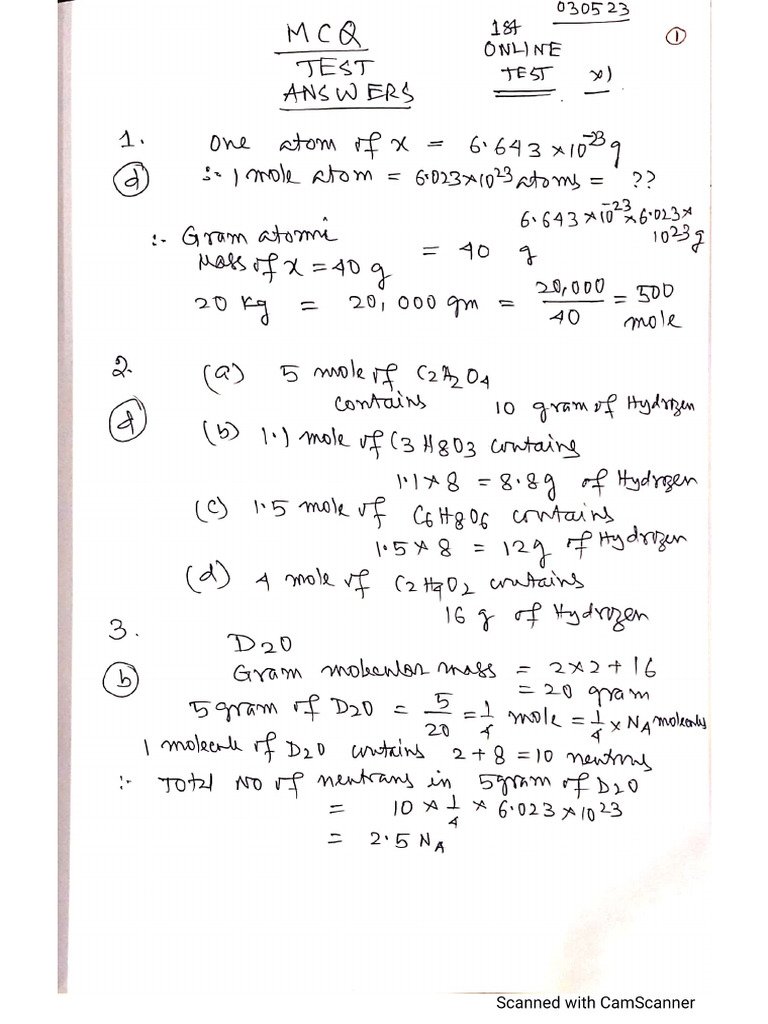 030523
MCQ
TEST
ANSWERS
1st
ONLINE
TEST XI
①
1. One atom of x = 6.643 × 10⁻²³ g
(d) ∴ 1 mole atom = 6.023×10²³ atoms = ??
6.643 × 10⁻²³ × 6.023 × 10²³ g
∴ Gram atomic
Mass of x = 40 g
= 40 g
20 kg = 20,000 gm = 20,000/40 = 500 mole
2. (a) 5 mole of C2H2O4
contains 10 gram of Hydrozen
(d)
(b) 1.1 mole of C3H8O3 contains
1.1 × 8 = 8.8g of Hydrozen
(c) 1.5 mole of C6H8O6 contains
1.5 × 8 = 12g of Hydrozen
(d) 4 mole of C2H4O2 contains
16 g of Hydrozen
3. D2O
(b) Gram molecular mass = 2×2+16
= 20 gram
5 gram of D2O = 5/20 = 1/4 mole = 1/4 × NA molecules
1 molecule of D2O contains 2+8 = 10 neutrons
∴ Total No of neutrans in 5gram of D2O
= 10 × 1/4 × 6.023 × 10²³
= 2.5 NA
Scanned with CamScanner